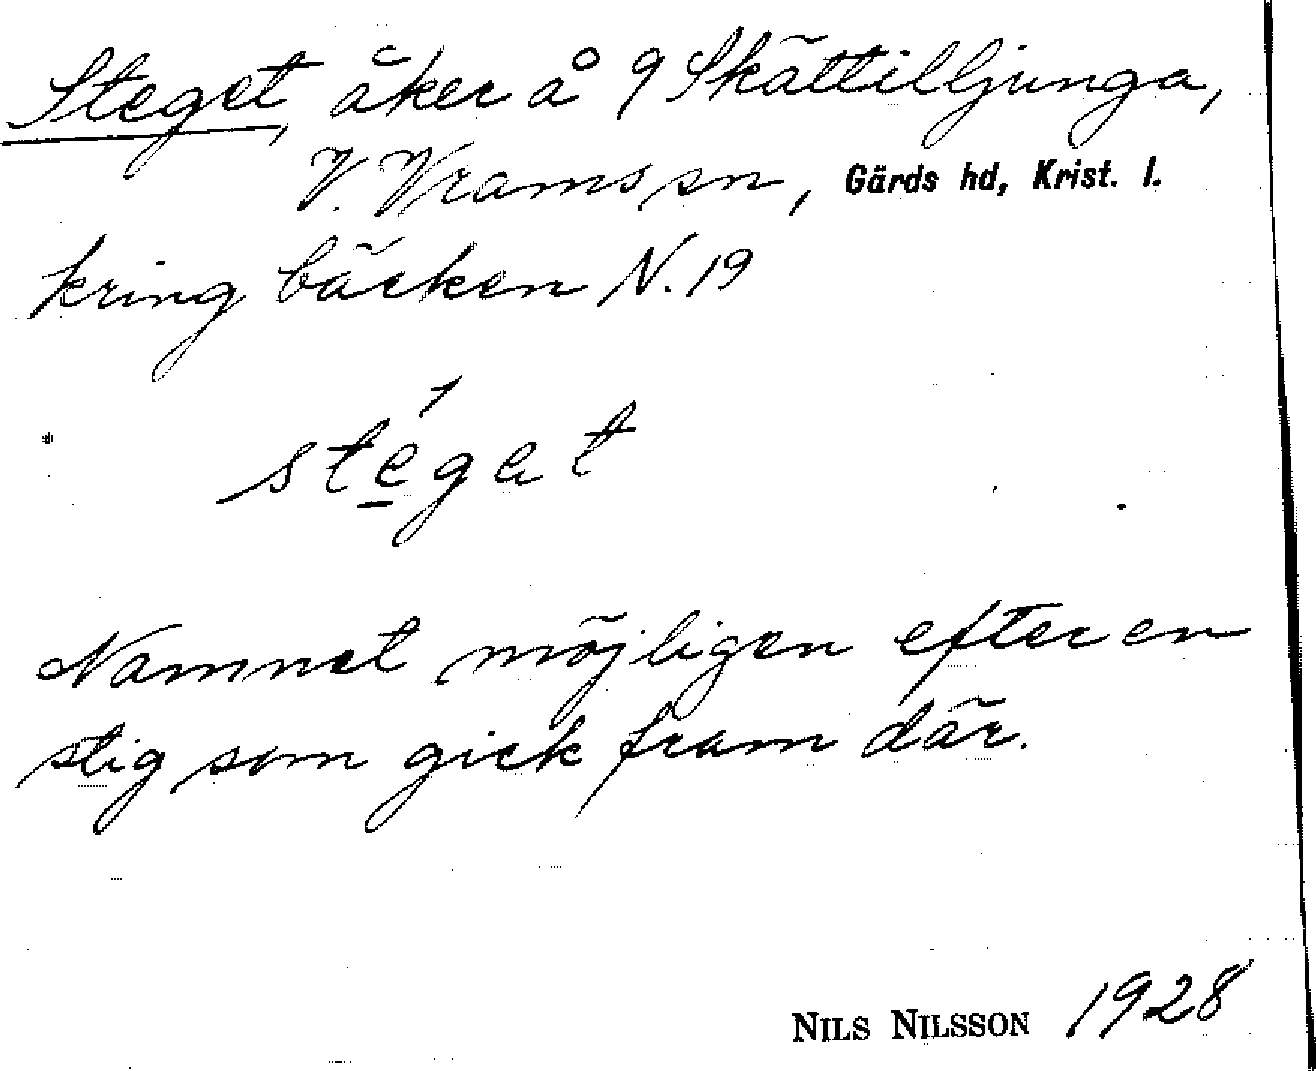 Steget, åker å 9 Skättilljunga,
V. Vrams sn, Gärds hd, Krist. l.
kring bäcken N. 19
stégat
Namnet möjligen efter en
stig som gick fram där.
NILS NILSSON 1928